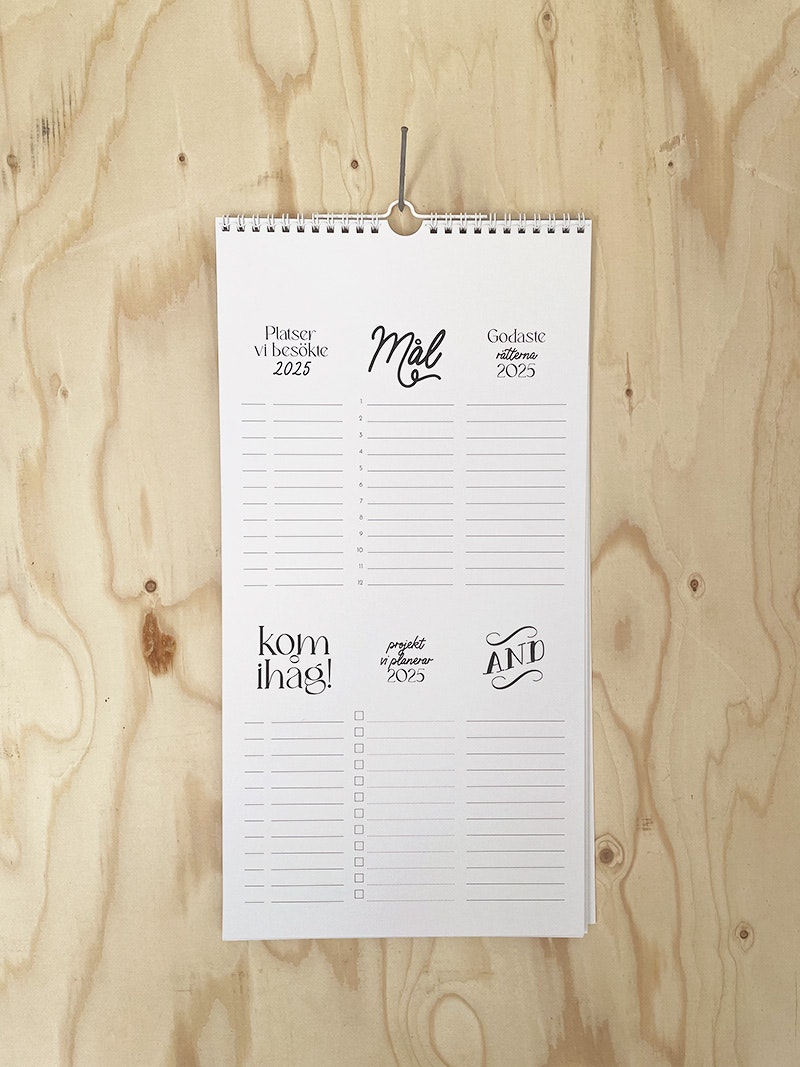 Platser
vi besökte
2025
Mål
Godaste
rätterna
2025
1
2
3
4
5
6
7
8
9
10
11
12
kom
ihåg!
projekt
vi planerar
2025
AND